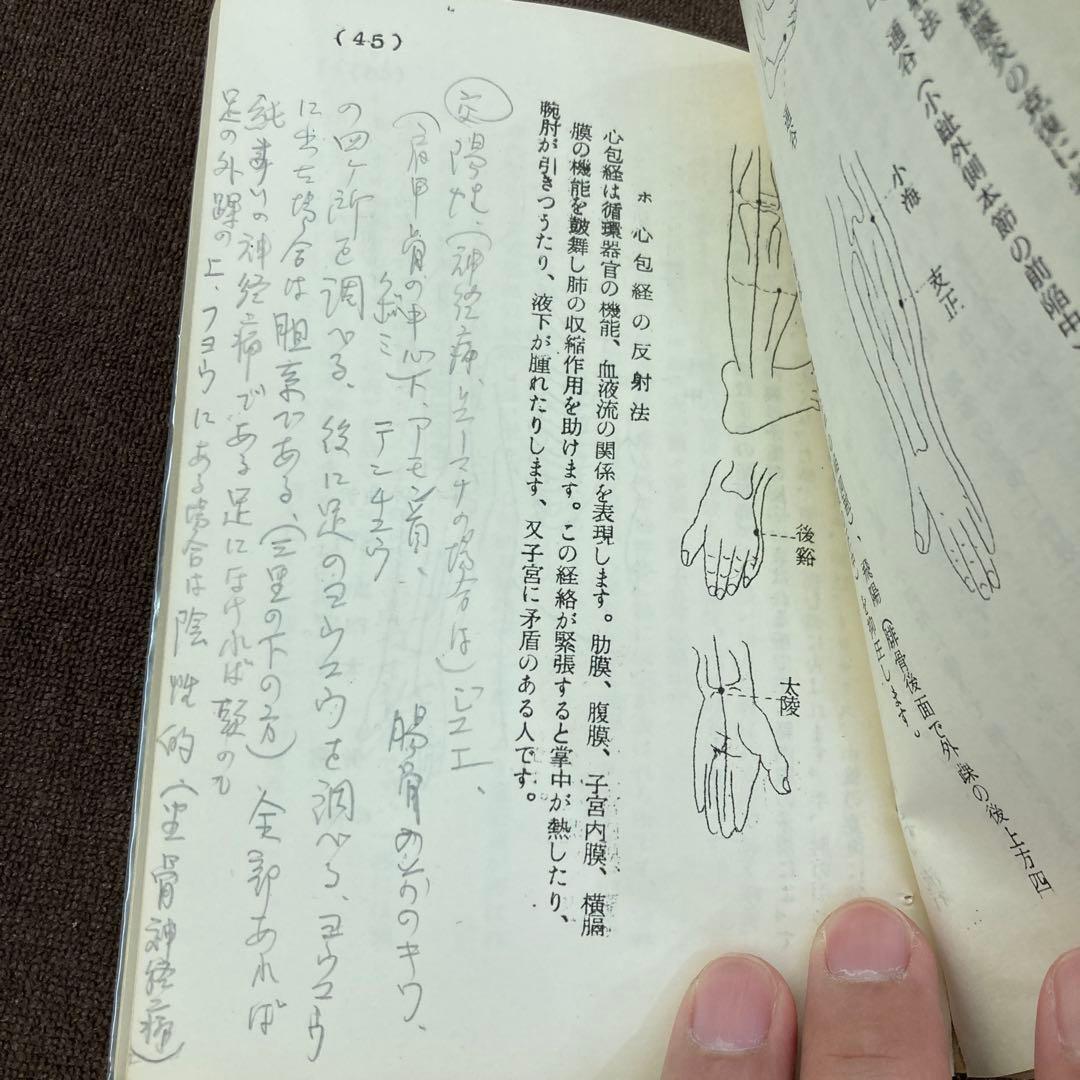 結膜炎の克復に
法
通谷(小趾外側本節の前陥中)
通谷
小海
支正
飛陽(腓骨後面で外踝の後上方四
を抑圧します。
後谿
太陵
(45)
ホ 心包経の反射法
心包経は循環器官の機能、血液流の関係を表現します。肋膜、腹膜、子宮内膜、横膈
膜の機能を鼓舞し肺の収縮作用を助けます。この経絡が緊張すると掌中が熱したり、
腕肘が引きつうたり、液下が腫れたりします、又子宮に矛盾のある人です。
陽性、(神経痛、リユーマチの場合は)
(肩甲骨の中心下、アーモン穴、腸骨の前のキワ、
テンチユウ
の四ヶ所を調べる、後に足のヨウコウを調べる、ヨウコウ
に出た場合は胆系である、(三里の下の方)全部あれば
純粋の神経痛である足になければ頚のも
足の外踝の上、フヨウにある場合は陰性的(坐骨神経痛)